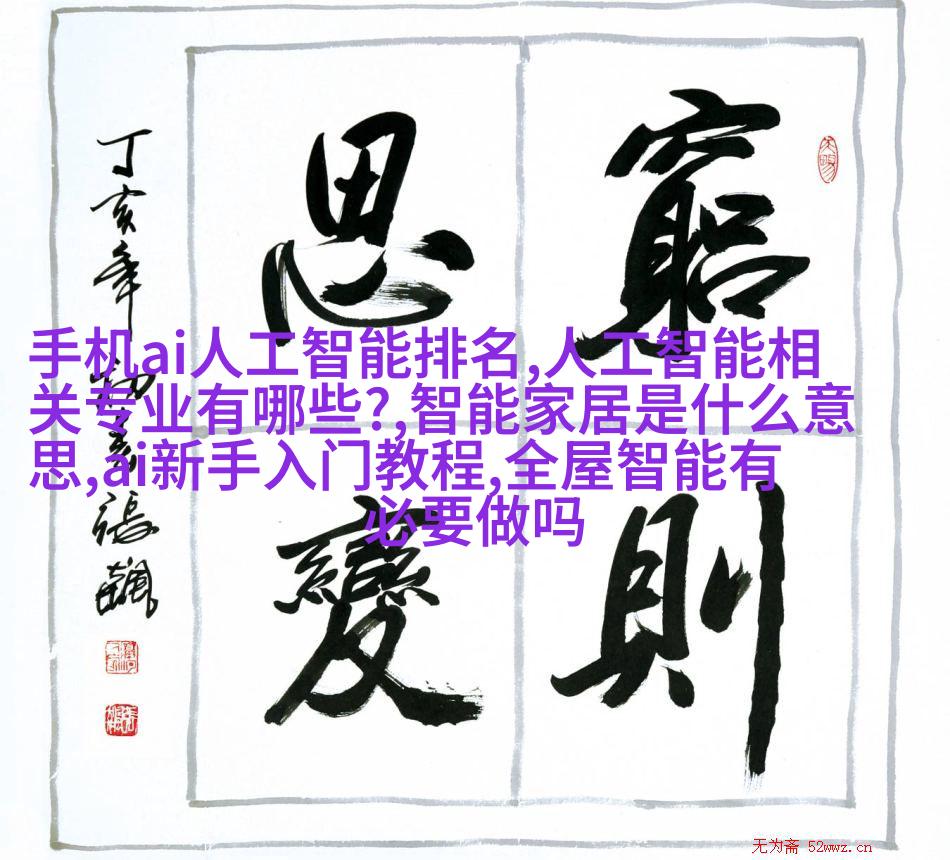 窮則
思變
丁亥年
張飆
手机ai人工智能排名,人工智能相
关专业有哪些?,智能家居是什么意
思,ai新手入门教程,全屋智能有
必要做吗
无为斋 52wwz.cn